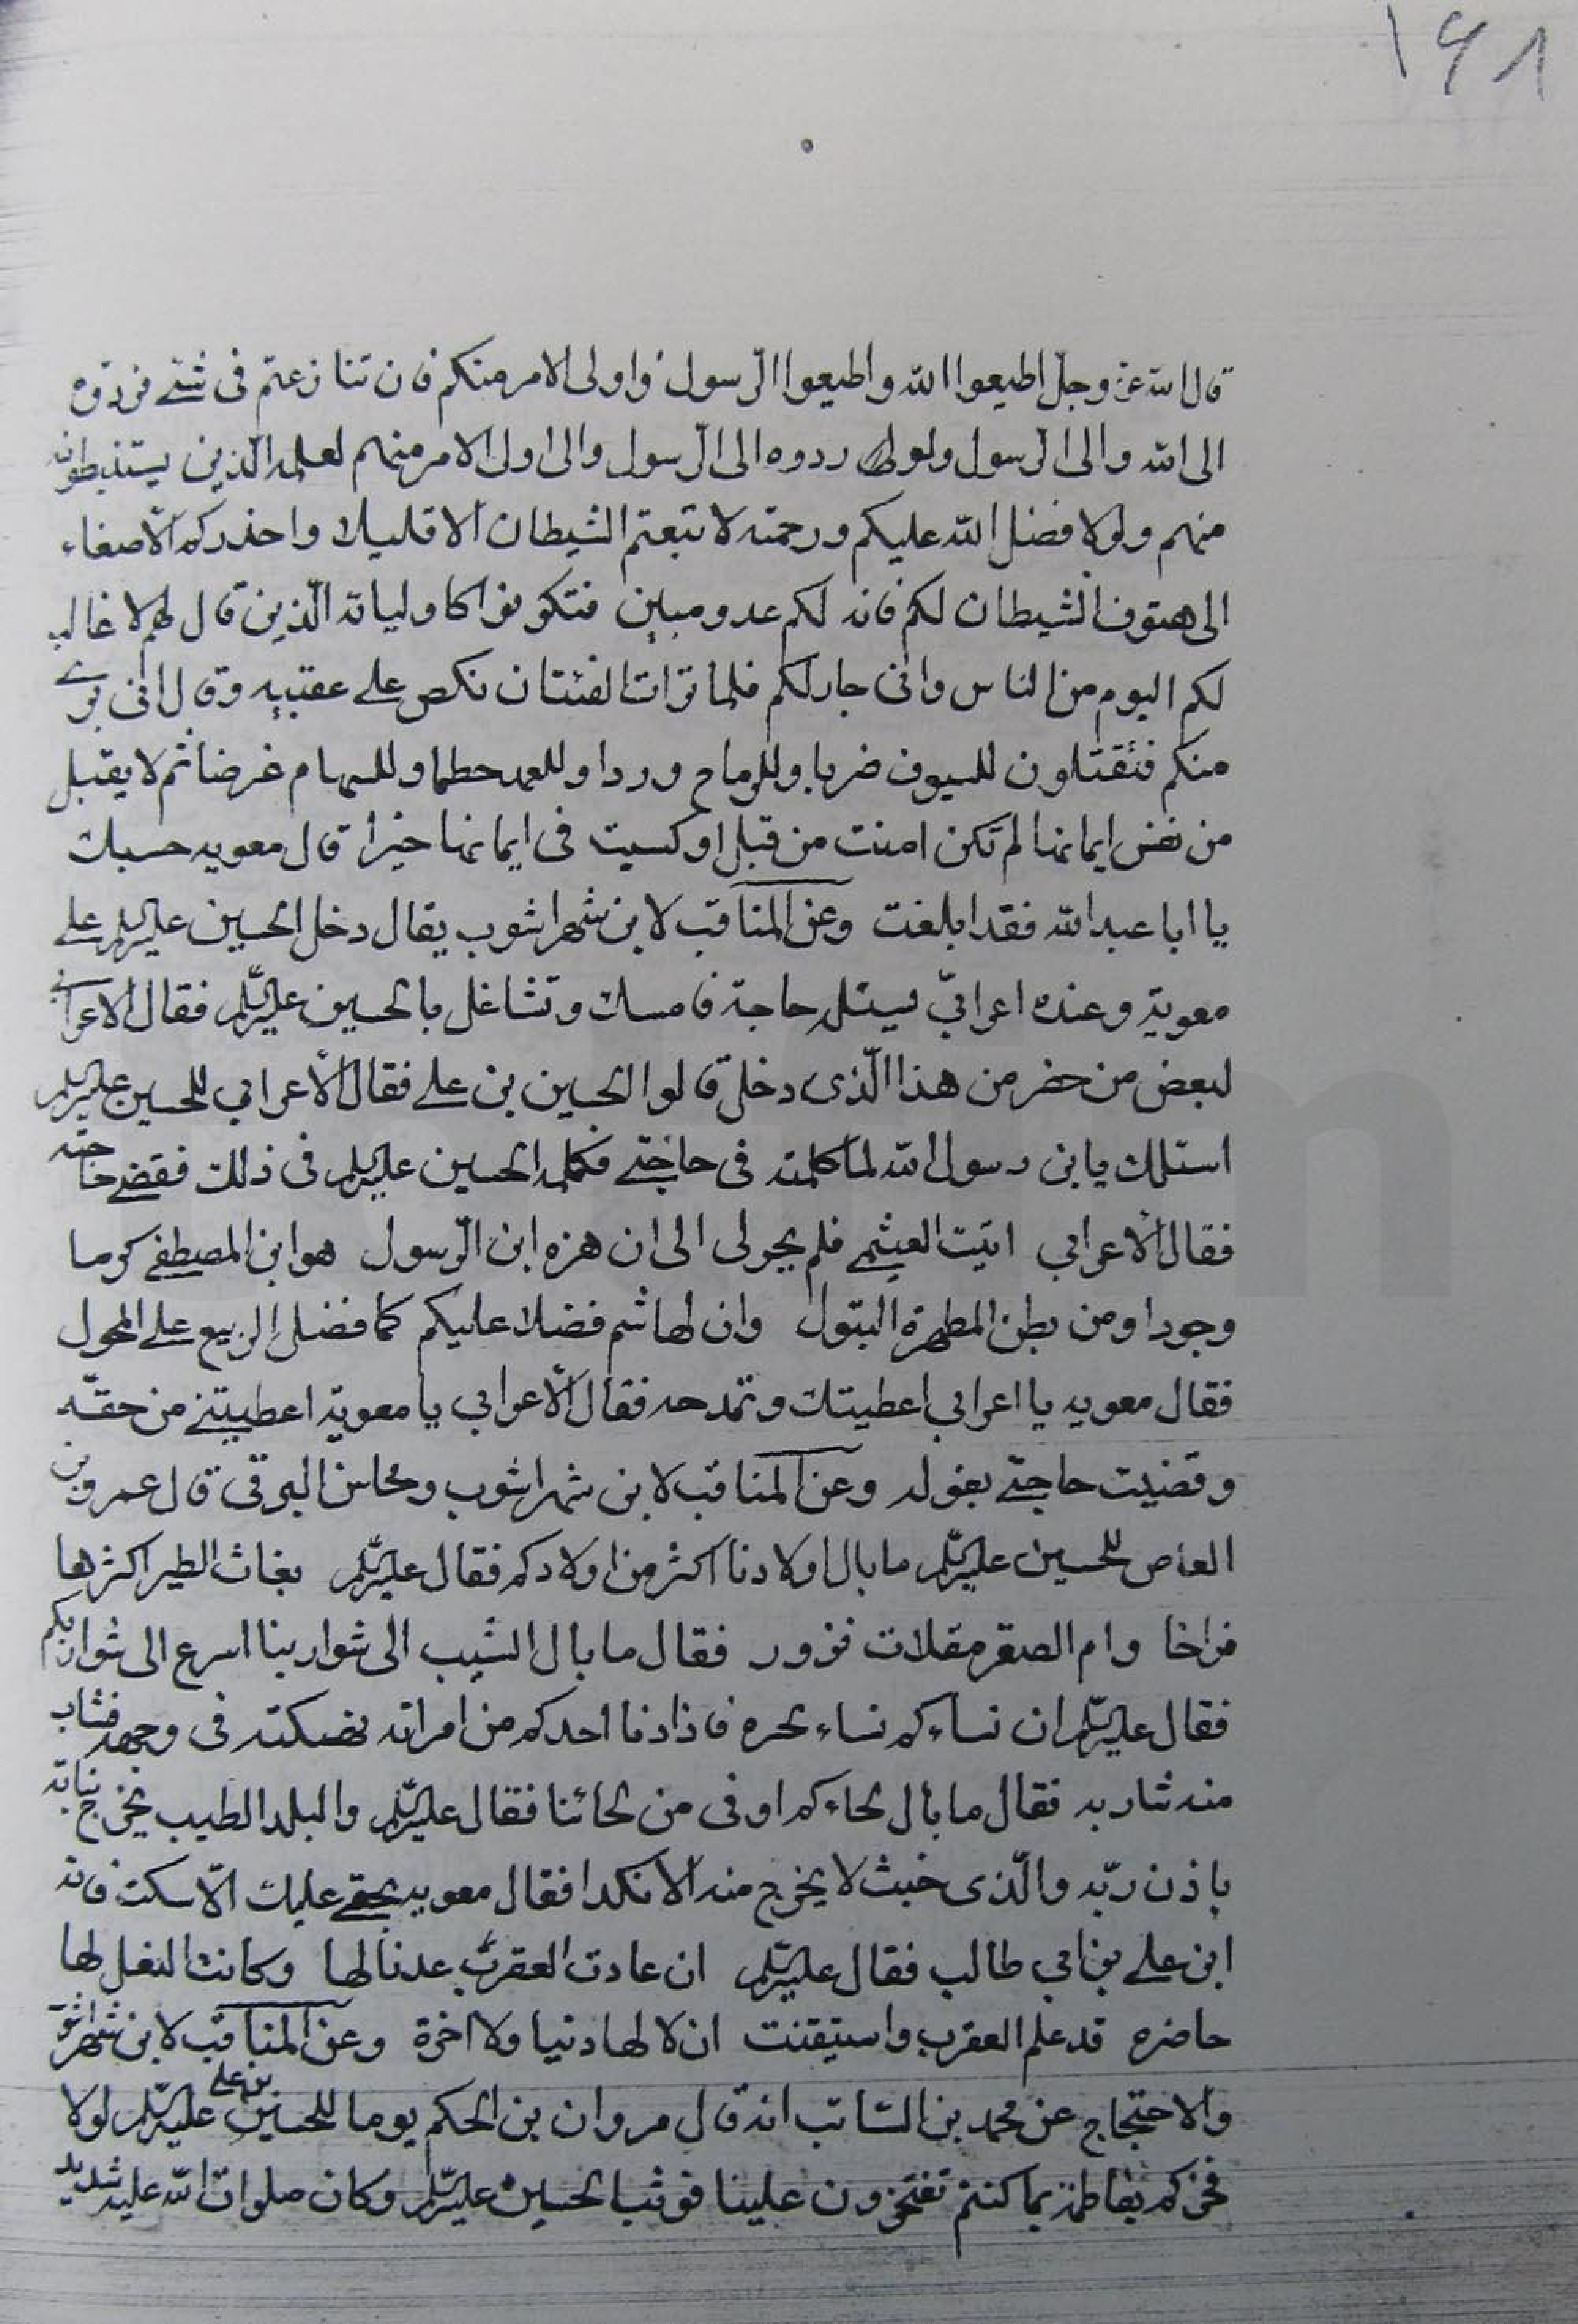 ١٤٨
قال الله عز وجل اطيعوا الله واطيعوا الرسول واولى الامر منكم فان تنازعتم فى شئ فردوه
الى الله والى الرسول ولو ردوه الى الرسول والى اولى الامر منهم لعلمه الذين يستنبطونه
منهم ولولا فضل الله عليكم ورحمته لاتبعتم الشيطان الا قليلا واحذركم الاصغاء
الى هتوف الشيطان لكم فانه لكم عدو مبين فتكونوا كاوليائه الذين قال لهم لا غالب
لكم اليوم من الناس وانى جار لكم فلما ترائت الفئتان نكص على عقبيه وقال انى برى
منكم فتقتلون للسيوف ضربا وللرماح وردا وللعمد حطما وللسهام غرضا ثم لا يقبل
من نفس ايمانها لم تكن امنت من قبل او كسبت فى ايمانها خيرا قال معويه حسبك
يا ابا عبدالله فقد ابلغت وعن المناقب لابن شهراشوب يقال دخل الحسين عليه السلام على
معوية وعنده اعرابي يسئله حاجة فامسك وتشاغل بالحسين عليه السلام فقال الاعرابي
لبعض من حضر من هذا الذى دخل قالوا الحسين بن على فقال الأعرابي للحسين عليه السلام
اسئلك يابن رسول الله لما كلمته فى حاجتى فكلمه الحسين عليه السلام فى ذلك فقضى حاجته
فقال الأعرابي اتيت العبشمي فلم يجد لى الى ان هزه ابن الرسول هو ابن المصطفى كرما
وجودا ومن بطن المطهرة البتول وان لهاشم فضلا عليكم كما فضل الربيع على المحول
فقال معويه يا اعرابي اعطيتك وتمدحه فقال الأعرابي يا معوية اعطيتنى من حقه
وقضيت حاجتى بقوله وعن المناقب لابن شهراشوب ومحاسن البرقى قال عمرو بن
العاص للحسين عليه السلام ما بال اولادنا اكثر من اولادكم فقال عليه السلام بغاث الطير اكثرها
فراخا وام الصقر مقلات نزور فقال ما بال الشيب الى شواربنا اسرع الى شواربكم
فقال عليه السلام ان نساءكم نساء بخره فاذا دنا احدكم من امراته نهكته فى وجهه فشاب
منه شاربه فقال ما بال لحاءكم اوفى من لحائنا فقال عليه السلام والبلد الطيب يخرج نباته
باذن ربه والذى خبث لا يخرج منه الا نكدا فقال معويه بحقى عليك الا سكت فانه
ابن على بن ابي طالب فقال عليه السلام ان عادت العقرب عدنا لها وكانت النعل لها
حاضره قد علم العقرب واستيقنت ان لا لها دنيا ولا اخرة وعن المناقب لابن شهراشوب
والاحتجاج عن محمد بن السائب انه قال مروان بن الحكم يوما للحسين بن على عليه السلام لولا
فخركم بفاطمة بما كنتم تفتخرون علينا فوثب الحسين عليه السلام وكان صلوات الله عليه شديد